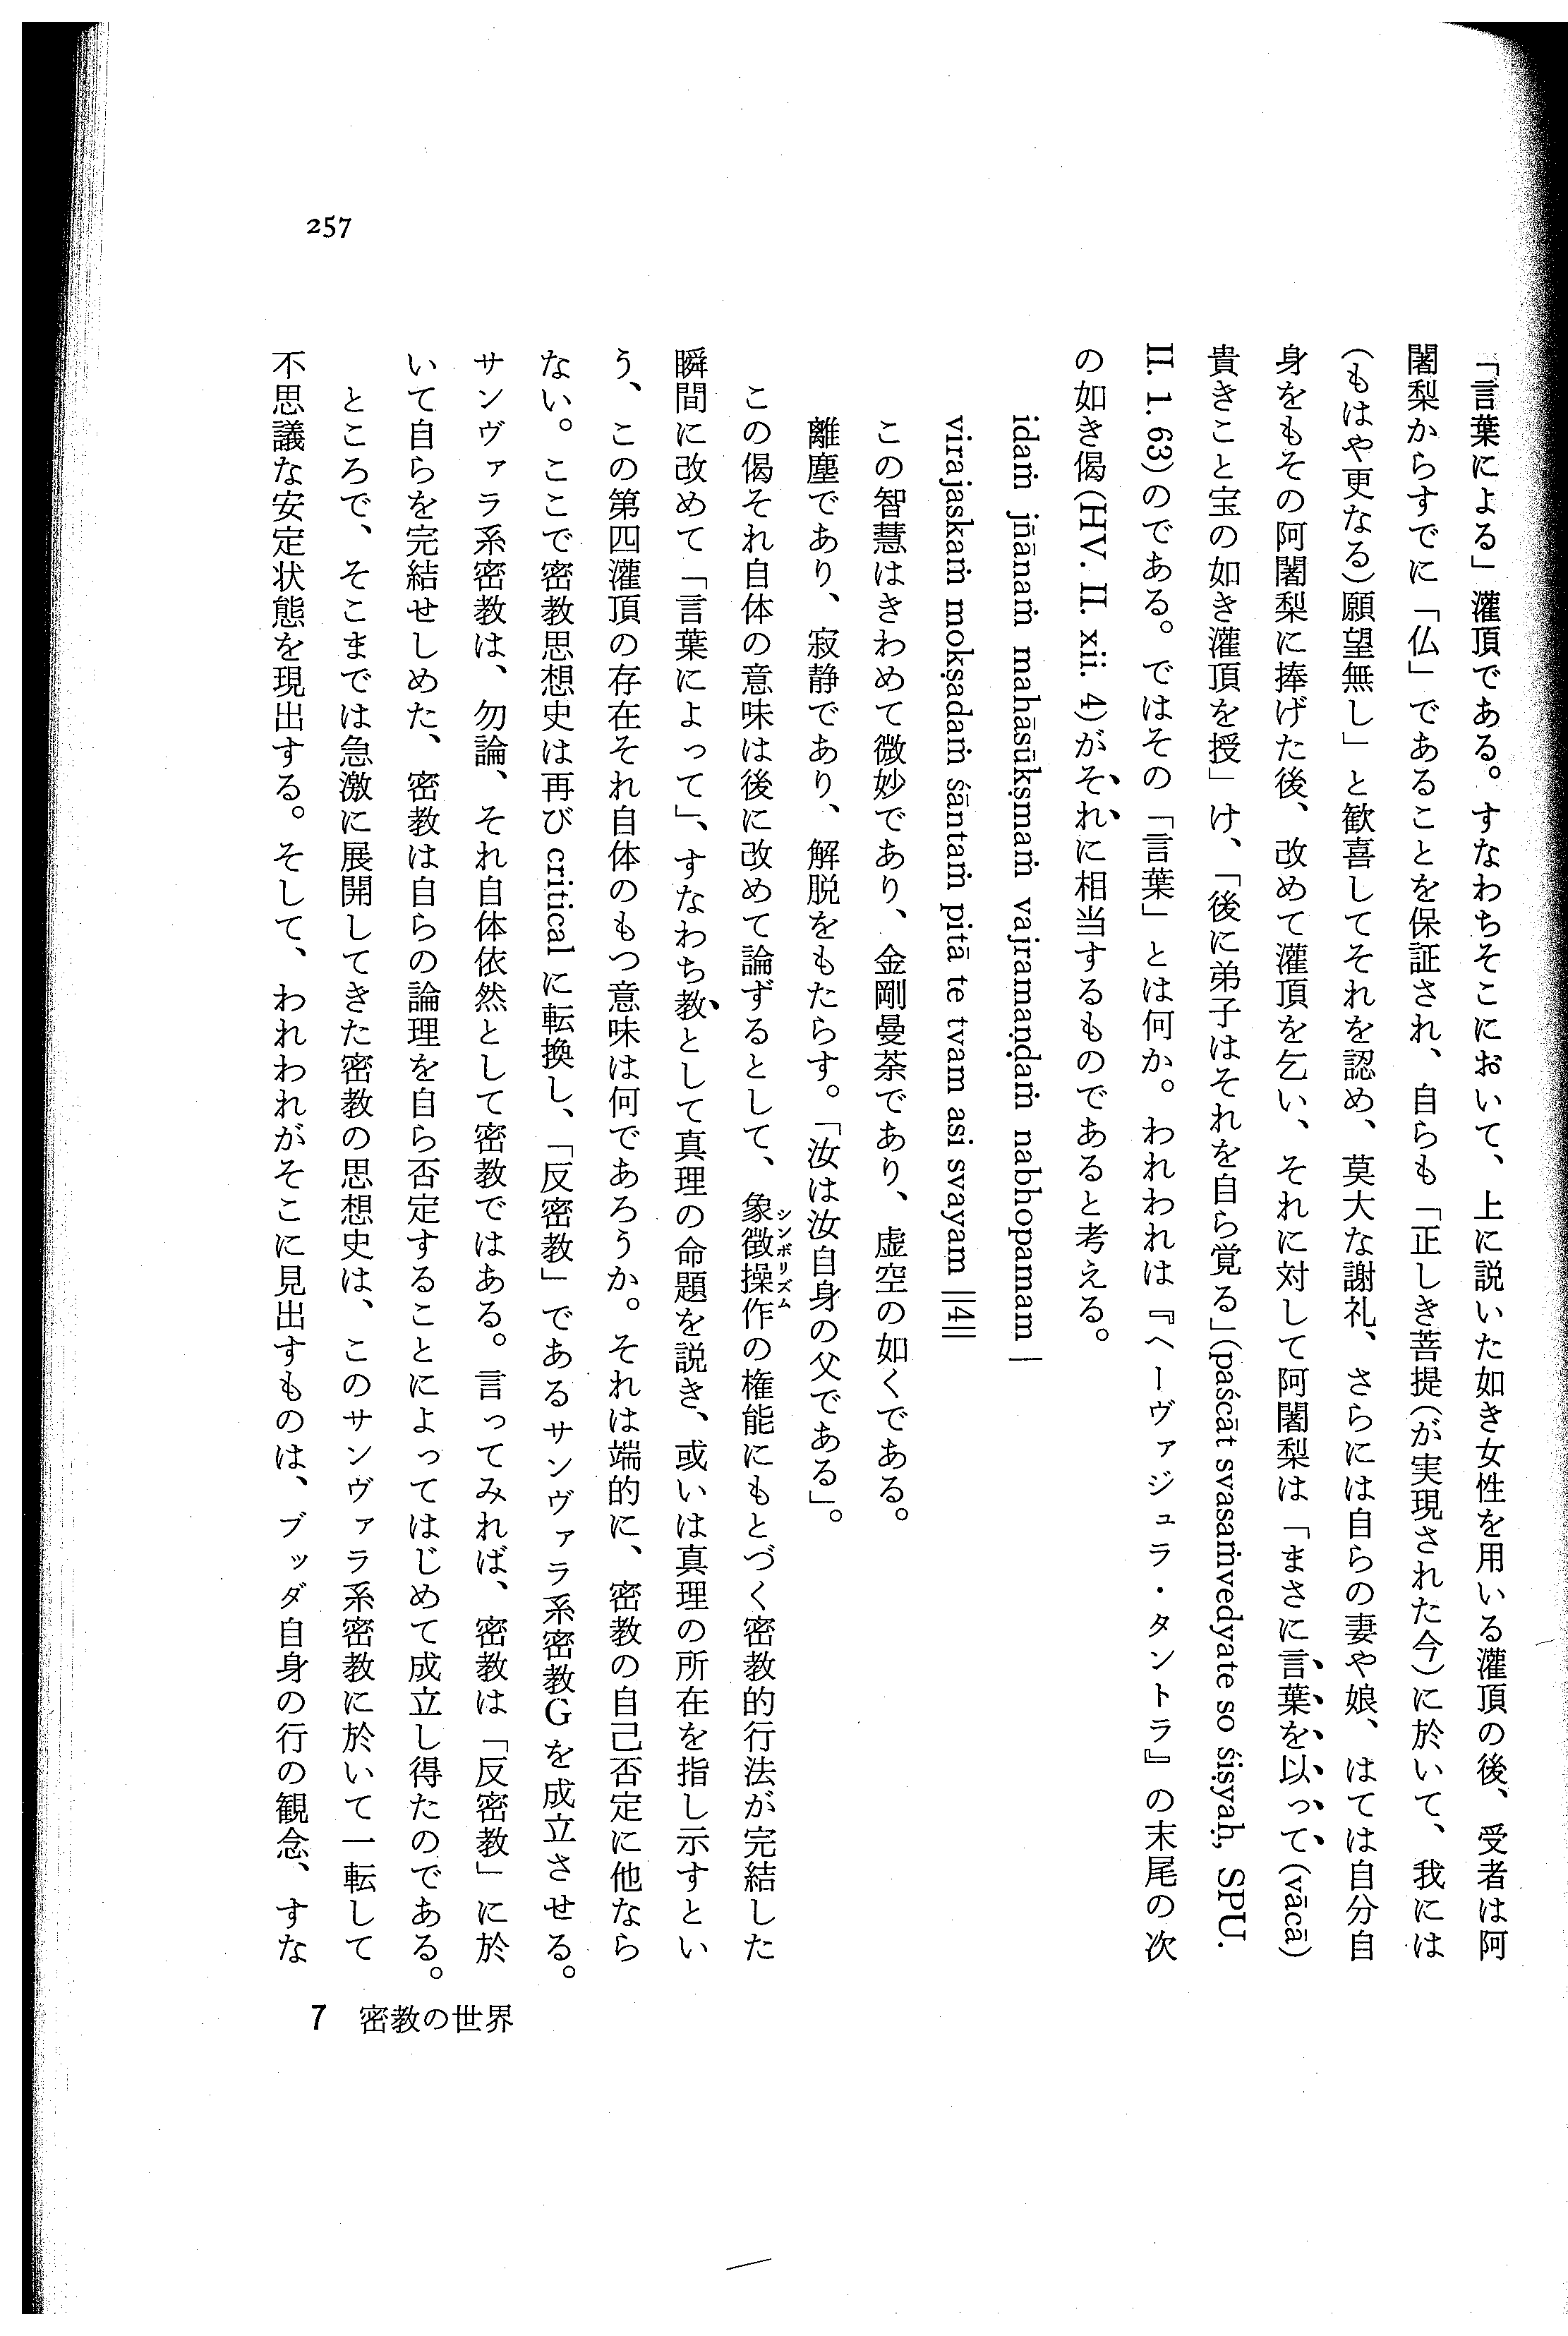 「言葉による」灌頂である。すなわちそこにおいて、上に説いた如き女性を用いる灌頂の後、受者は阿
闍梨からすでに「仏」であることを保証され、自らも「正しき菩提(が実現された今)に於いて、我には
(もはや更なる)願望無し」と歓喜してそれを認め、莫大な謝礼、さらには自らの妻や娘、はては自分自
身をもその阿闍梨に捧げた後、改めて灌頂を乞い、それに対して阿闍梨は「まさに言葉を以って(vācā)
貴きこと宝の如き灌頂を授」け、「後に弟子はそれを自ら覚る」(paścāt svasaṁvedyate so śiṣyaḥ, SPU.
II. 1. 63)のである。ではその「言葉」とは何か。われわれは『ヘーヴァジュラ・タントラ』の末尾の次
の如き偈(HV. II. xii. 4)がそれに相当するものであると考える。
idaṁ jñānaṁ mahāsūkṣmaṁ vajramaṇḍaṁ nabhopamam |
virajaskaṁ mokṣadaṁ śāntaṁ pitā te tvam asi svayam ||4||
この智慧はきわめて微妙であり、金剛曼荼であり、虚空の如くである。
離塵であり、寂静であり、解脱をもたらす。「汝は汝自身の父である」。
この偈それ自体の意味は後に改めて論ずるとして、象徴操作シンボリズムの権能にもとづく密教的行法が完結した
瞬間に改めて「言葉によって」、すなわち教として真理の命題を説き、或いは真理の所在を指し示すとい
う、この第四灌頂の存在それ自体のもつ意味は何であろうか。それは端的に、密教の自己否定に他なら
ない。ここで密教思想史は再び critical に転換し、「反密教」であるサンヴァラ系密教Gを成立させる。
サンヴァラ系密教は、勿論、それ自体依然として密教ではある。言ってみれば、密教は「反密教」に於
いて自らを完結せしめた、密教は自らの論理を自ら否定することによってはじめて成立し得たのである。
ところで、そこまでは急激に展開してきた密教の思想史は、このサンヴァラ系密教に於いて一転して
不思議な安定状態を現出する。そして、われわれがそこに見出すものは、ブッダ自身の行の観念、すな
257
7 密教の世界